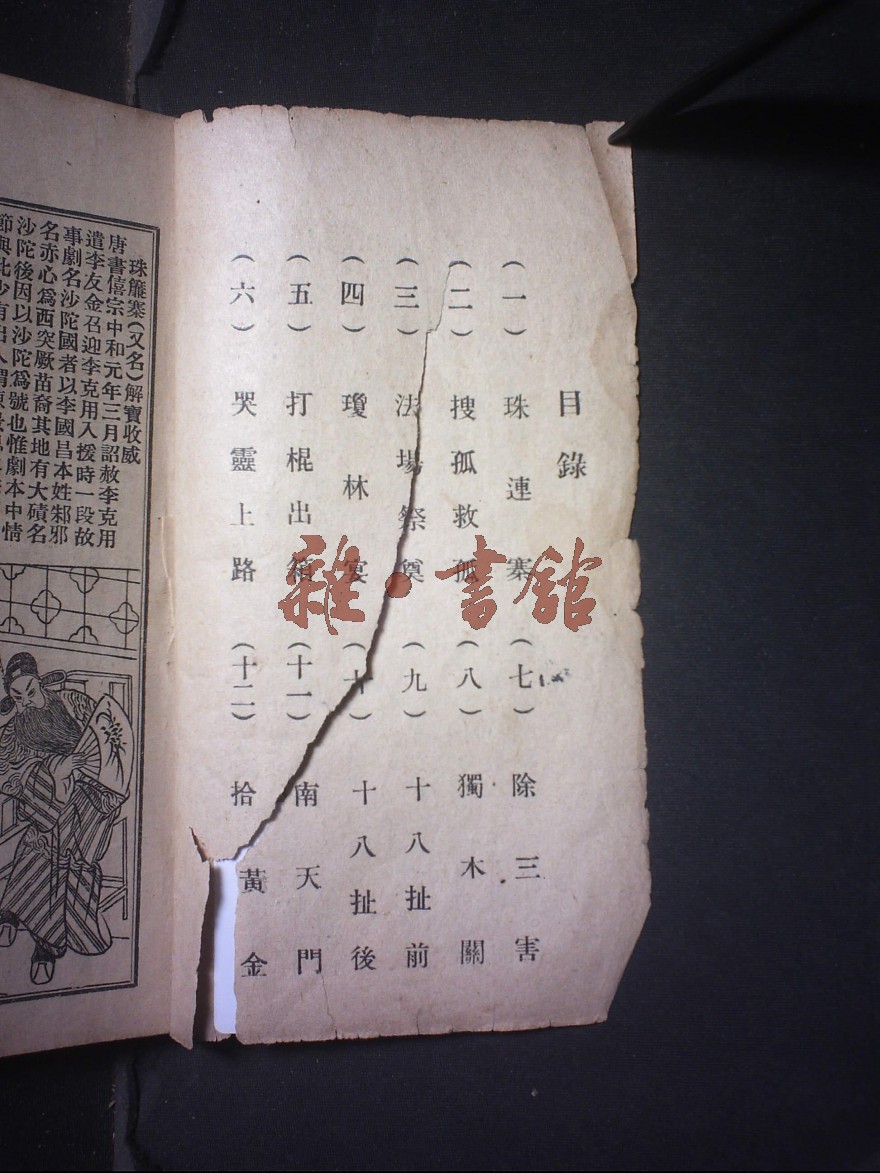 目錄
(一) 珠連寨 (七) 除三害
(二) 搜孤救孤 (八) 獨木關
(三) 法場祭奠 (九) 十八扯前
(四) 瓊林宴 (十) 十八扯後
(五) 打棍出箱 (十一) 南天門
(六) 哭靈上路 (十二) 拾黃金
雜·書館
珠簾寨(又名)解寶收威
唐書僖宗中和元年三月詔赦李克用
遣李友金召迎李克用入援時一段故
事劇名沙陀國者以李國昌本姓邾邪
名赤心爲西突厥苗裔其地有大磧名
沙陀後因以沙陀爲號也惟劇本中情
節與此少有出入